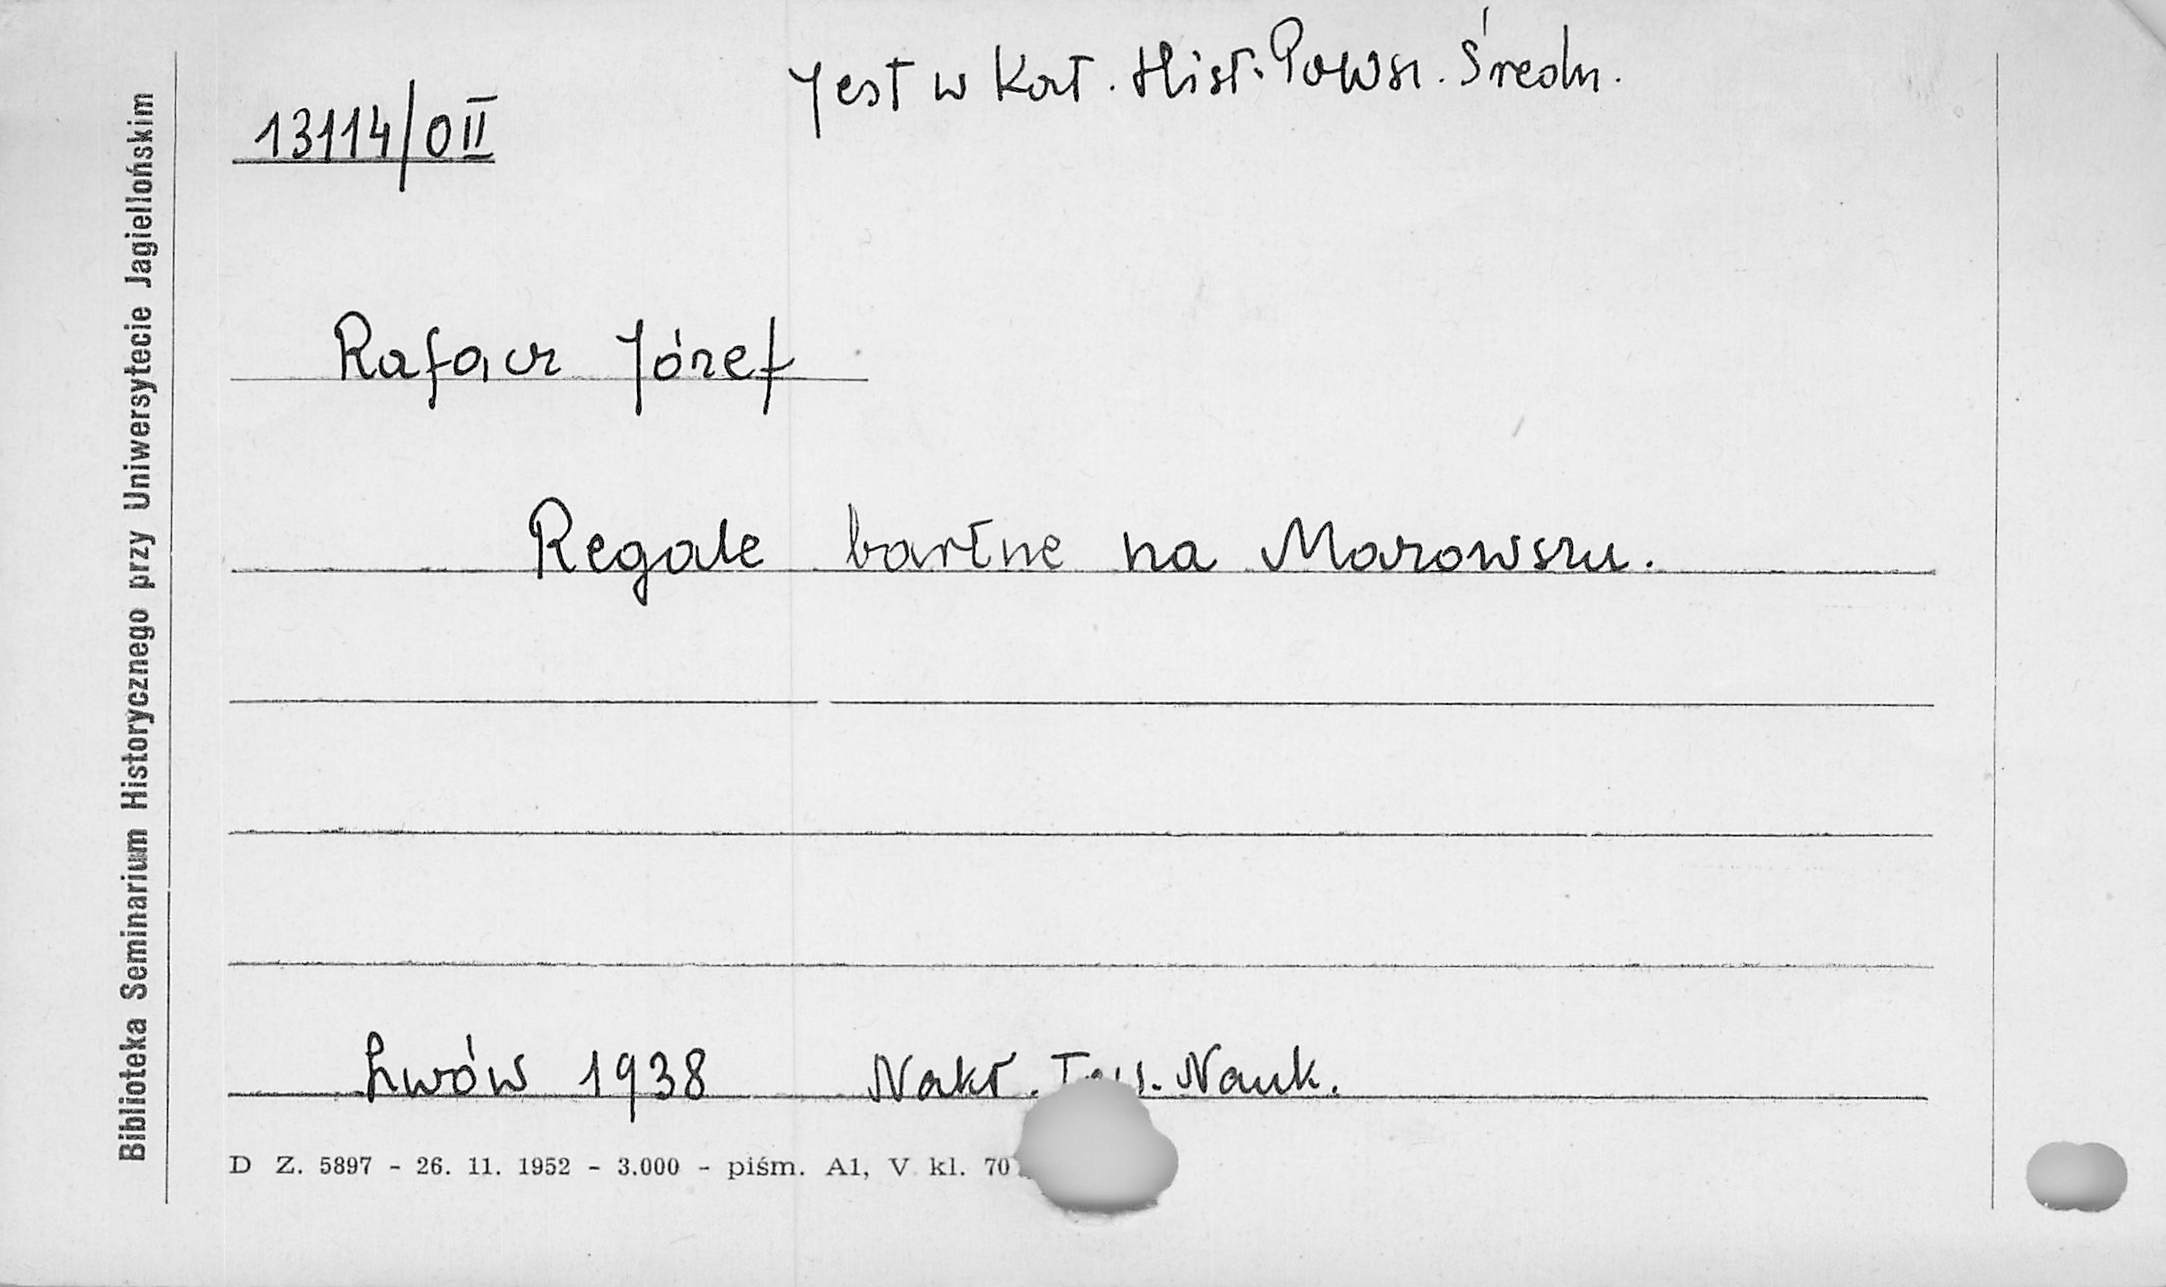 Jest w Kat. Hist. Powsz. Średn.
13114/0 II
Rafacz Józef
Regale bartne na Mazowszu.
Lwów 1938 Nakł. Tow. Nauk.
D Z. 5897 - 26. 11. 1952 - 3.000 - piśm. A1, V kl. 70
Biblioteka Seminarium Historycznego przy Uniwersytecie Jagiellońskim